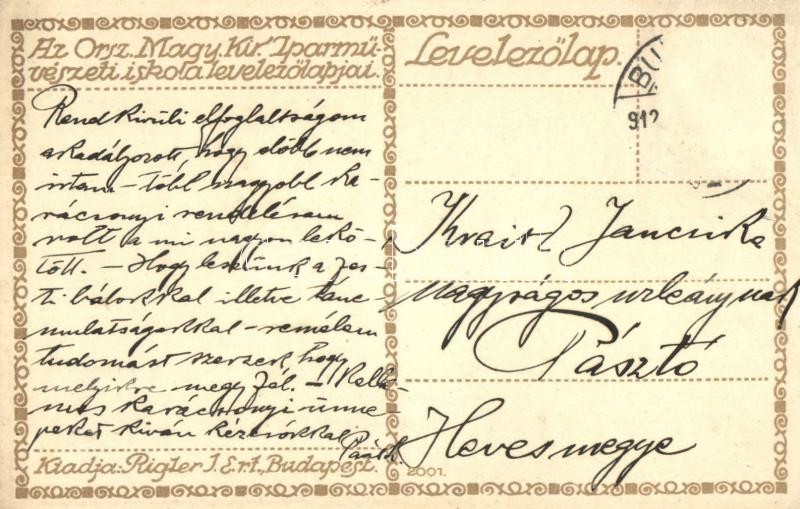 Az Orsz. Magy. Kir. Iparmű-
vészeti iskola levelezőlapjai.
Levelezőlap.
BU
912
Rendkivüli elfoglaltságom
akadályozott, hogy előbb nem
irtam – több nagyobb ka-
rácsonyi rendelésem
volt a mi nagyon lekö-
tött. – Hogy leszünk a
ti bálokkal illetve tánc
mulatságokkal – remélem
tudomást szerzek, hogy
melyikre megy – Kelle-
mes karácsonyi ünne-
peket kiván kézcsókkal
Jancsika
nagyságos urleánynak
Pásztó
Hevesmegye
Kiadja: Rigler J. E. r.t., Budapest.
8001.